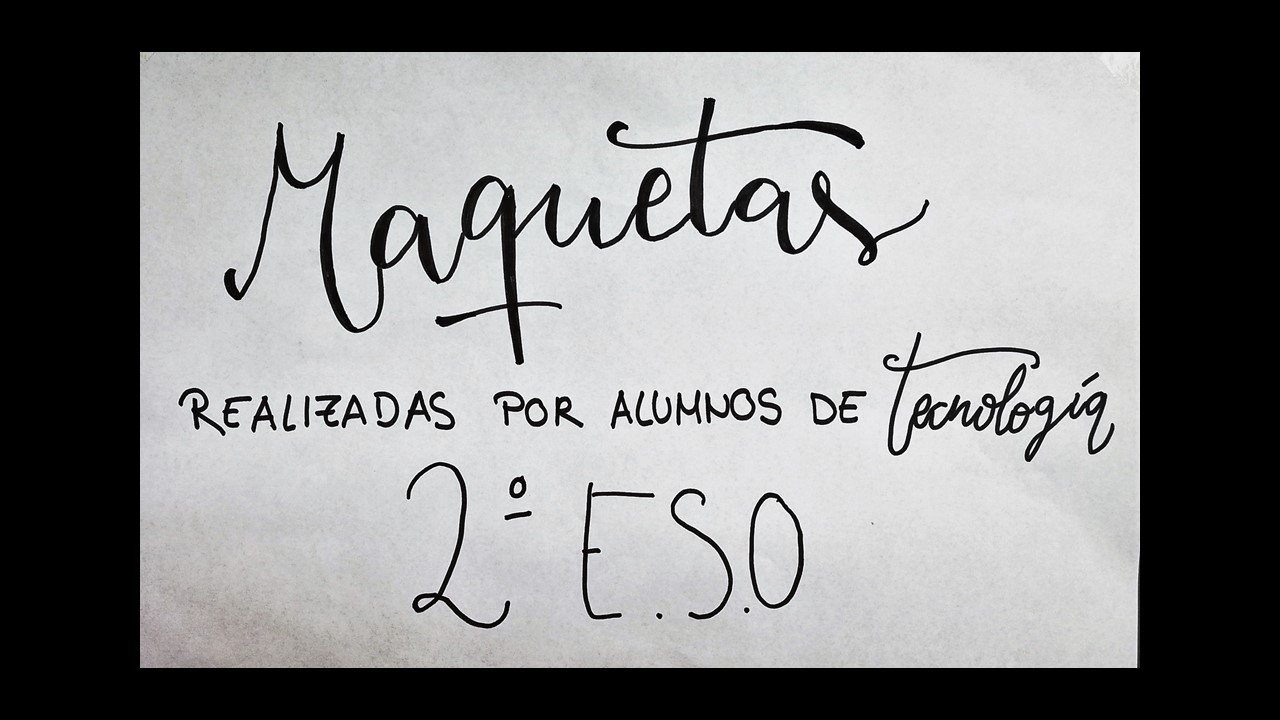 Maquetas
REALIZADAS POR ALUMNOS DE Tecnología
2º E.S.O